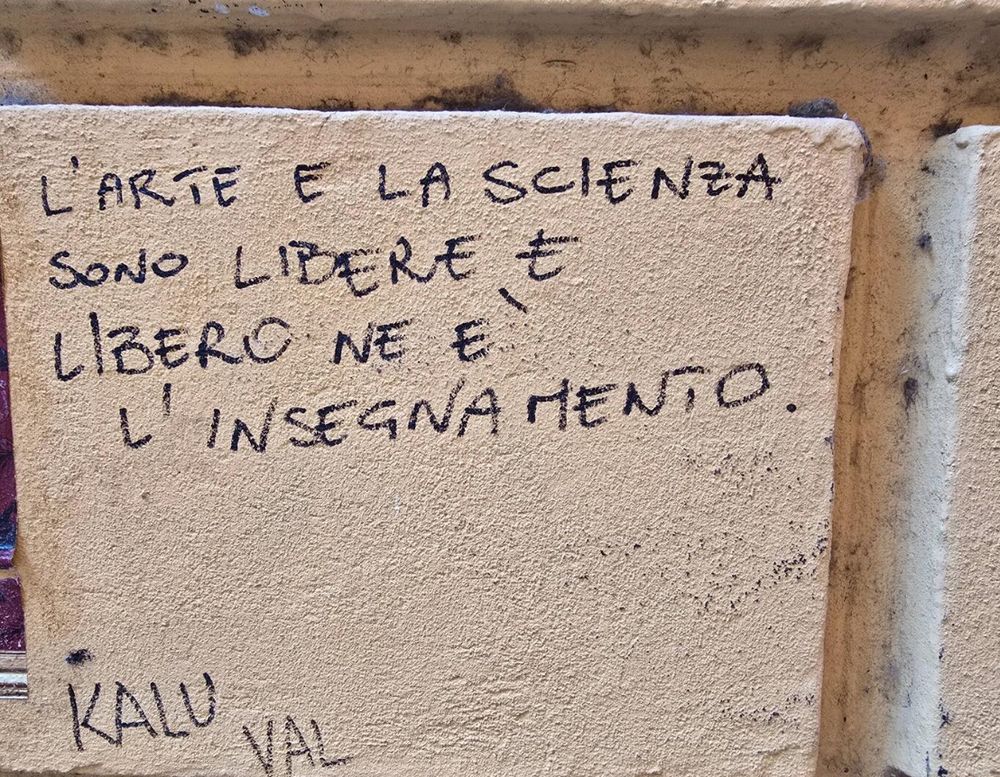 L'ARTE E LA SCIENZA
SONO LIBERE E
LIBERO NE È
L'INSEGNAMENTO.
KALU
VAL